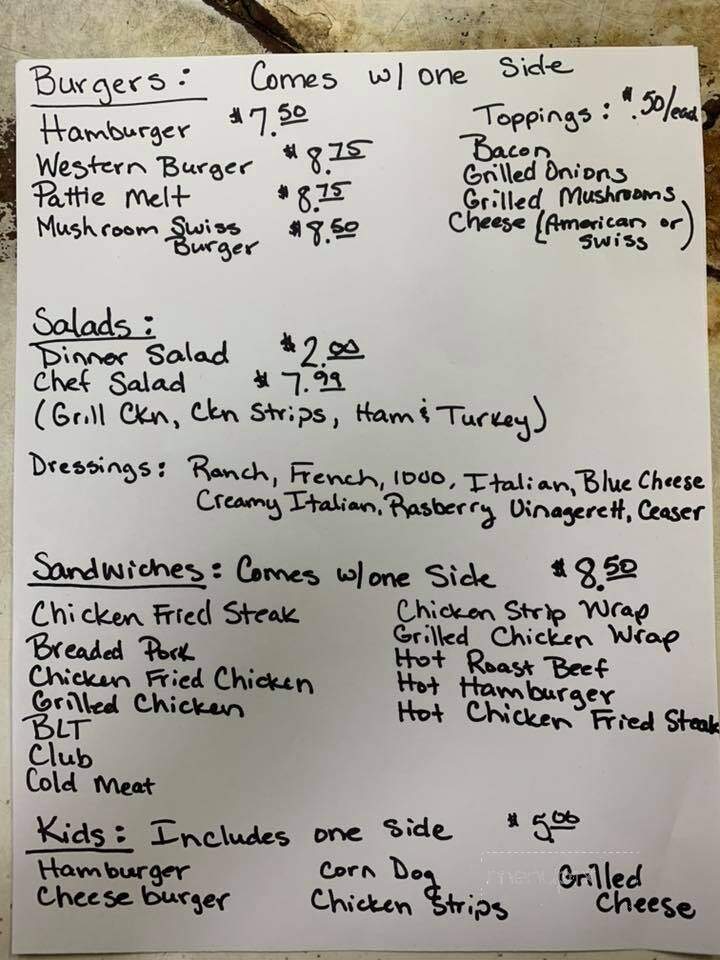 Burgers: Comes w/ one Side
Hamburger $7.50
Western Burger $8.75
Pattie Melt $8.75
Mushroom Swiss Burger $8.50
Toppings: $.50/each
Bacon
Grilled Onions
Grilled Mushrooms
Cheese (American or Swiss)
Salads:
Dinner Salad $2.00
Chef Salad $7.99
(Grill Ckn, Ckn Strips, Ham & Turkey)
Dressings: Ranch, French, 1000, Italian, Blue Cheese
Creamy Italian, Rasberry Vinagerett, Ceaser
Sandwiches: Comes w/one Side $8.50
Chicken Fried Steak
Breaded Pork
Chicken Fried Chicken
Grilled Chicken
BLT
Club
Cold Meat
Chicken Strip Wrap
Grilled Chicken Wrap
Hot Roast Beef
Hot Hamburger
Hot Chicken Fried Steak
Kids: Includes one side $5.00
Hamburger
Cheese burger
Corn Dog
Chicken Strips
Grilled
Cheese